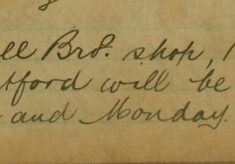 ell Bro. shop,
tford will be
and Monday.